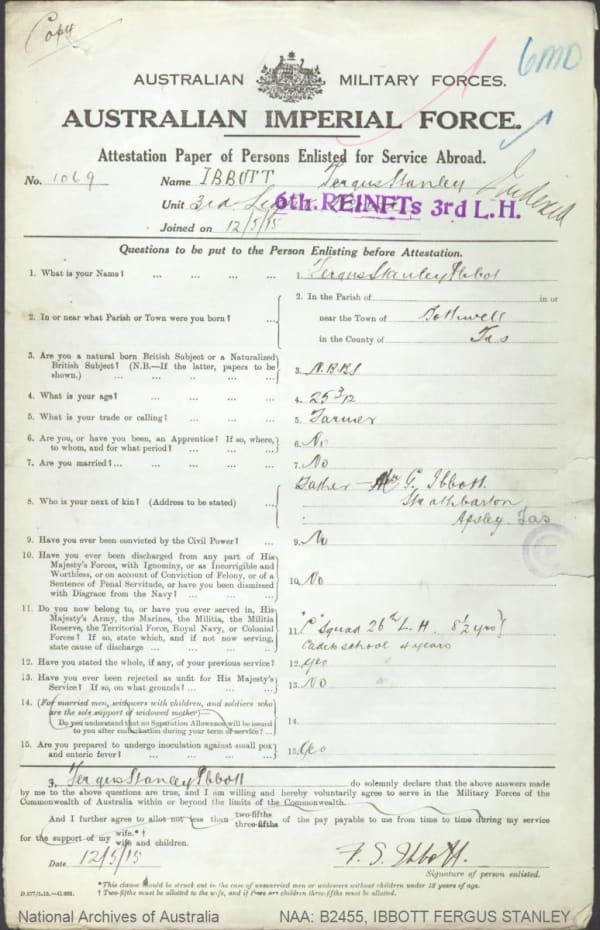 Copy
6MD
AUSTRALIAN MILITARY FORCES.
AUSTRALIAN IMPERIAL FORCE.
Attestation Paper of Persons Enlisted for Service Abroad.
Indexed
No. 1069 Name IBBOTT Fergus Stanley
Unit 3rd 6th. REINFTs 3rd L.H.
Joined on 12/5/15
Questions to be put to the Person Enlisting before Attestation.
1. What is your Name? ... ... ... ... 1. Fergus Stanley Ibbot
2. In or near what Parish or Town were you born? ... 2. In the Parish of in or
near the Town of Bothwell
in the County of Tas
3. Are you a natural born British Subject or a Naturalized
British Subject? (N.B.—If the latter, papers to be
shown.) ... ... ... ... ... 3. N.B.S
4. What is your age? ... ... ... ... 4. 25 3/12
5. What is your trade or calling? ... ... ... 5. Farmer
6. Are you, or have you been, an Apprentice? If so, where,
to whom, and for what period? ... ... ... 6. No
7. Are you married? ... ... ... ... ... 7. No
8. Who is your next of kin? (Address to be stated) ... Father — Mr G. Ibbott
Strathbarton
Apsley Tas
9. Have you ever been convicted by the Civil Power? ... 9. No
10. Have you ever been discharged from any part of His
Majesty's Forces, with Ignominy, or as Incorrigible and
Worthless, or on account of Conviction of Felony, or of a
Sentence of Penal Servitude, or have you been dismissed
with Disgrace from the Navy? ... ... ... 10. No
11. Do you now belong to, or have you ever served in, His
Majesty's Army, the Marines, the Militia, the Militia
Reserve, the Territorial Force, Royal Navy, or Colonial
Forces? If so, state which, and if not now serving,
state cause of discharge ... ... ... ... 11. "C" Squad 26th L.H. 8 1/2 yrs
Cadets school 4 years
12. Have you stated the whole, if any, of your previous service? 12. yes
13. Have you ever been rejected as unfit for His Majesty's
Service? If so, on what grounds? ... ... ... 13. No
14. (For married men, widowers with children, and soldiers who
are the sole support of widowed mother)—
Do you understand that no Separation Allowance will be issued
to you after embarkation during your term of service? ... 14.
15. Are you prepared to undergo inoculation against small pox
and enteric fever? ... ... ... ... 15. Yes
I, Fergus Stanley Ibbott do solemnly declare that the above answers made
by me to the above questions are true, and I am willing and hereby voluntarily agree to serve in the Military Forces of the
Commonwealth of Australia within or beyond the limits of the Commonwealth.
And I further agree to allot not less than two-fifths three-fifths of the pay payable to me from time to time during my service
for the support of my wife.*† wife and children.
Date 12/5/15 F. S. Ibbott.
Signature of person enlisted.
*This clause should be struck out in the case of unmarried men or widowers without children under 18 years of age.
† Two-fifths must be allotted to the wife, and if there are children three-fifths must be allotted.
National Archives of Australia NAA: B2455, IBBOTT FERGUS STANLEY